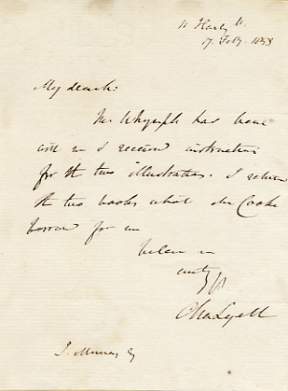 11 Harley St.
17. Feby. 1858
My dear Sir
Mr. Whymper has been
and received instructions
for the two illustrations. I return
the two books which Mr Cooke
borrowed for me
believe me
Cha Lyell
J. Murray Esq